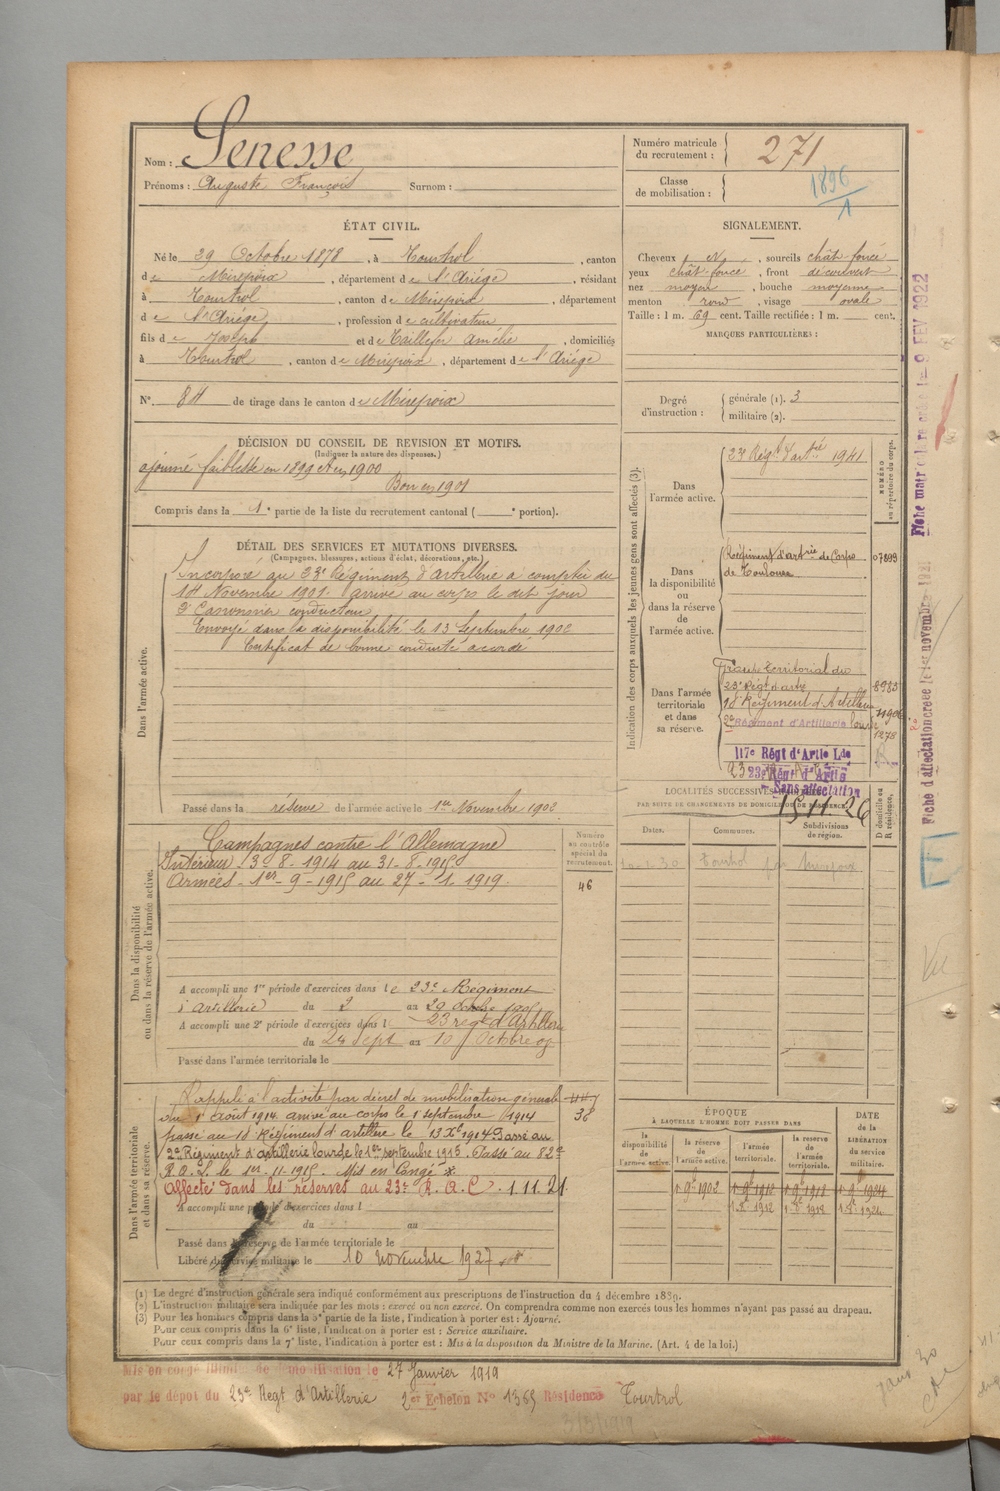 Nom : Senesse
Prénoms : Auguste François Surnom :
Numéro matricule du recrutement : 271
Classe de mobilisation : 1896/1
ÉTAT CIVIL.
Né le 29 Octobre 1878, à Tourtrol, canton
de Mirepoix, département de l'Ariège, résidant
à Tourtrol, canton de Mirepoix, département
de l'Ariège, profession de cultivateur
fils de Joseph et de Taillefer Amélie, domiciliés
à Tourtrol, canton de Mirepoix, département de l'Ariège
N° 84 de tirage dans le canton de Mirepoix
SIGNALEMENT.
Cheveux N., sourcils chât foncé
yeux chât-foncé, front découvert
nez moyen, bouche moyenne
menton rond, visage ovale
Taille : 1 m. 69 cent. Taille rectifiée : 1 m. cent.
MARQUES PARTICULIÈRES :
Degré d'instruction : générale (1). 3
militaire (2).
DÉCISION DU CONSEIL DE REVISION ET MOTIFS.
(Indiquer la nature des dispenses.)
ajourné faiblesse en 1899 et en 1900
Bon en 1901
Compris dans la 1e partie de la liste du recrutement cantonal ( e portion).
DÉTAIL DES SERVICES ET MUTATIONS DIVERSES.
(Campagnes, blessures, actions d'éclat, décorations, etc.)
Dans l'armée active.
Incorporé au 23e Régiment d'artillerie à compter du
14 Novembre 1901. arrivé au corps le dit jour
2e Canonnier conducteur
Envoyé dans la disponibilité le 13 Septembre 1902
Certificat de bonne conduite accordé
Passé dans la réserve de l'armée active le 1er Novembre 1902
Indication des corps auxquels les jeunes gens sont affectés (3).
NUMÉRO au répertoire du corps.
Dans l'armée active.
23e Régt d'artie 1941
Dans la disponibilité ou dans la réserve de l'armée active.
Régiment d'artrie de Corps 07899
de Toulouse
Dans l'armée territoriale et dans sa réserve.
Groupe Territorial du
23e Régt d'artie 8983
18e Régiment d'Artillerie
2e Régiment d'Artillerie lourde 1278
117e Régt d'Artie Lde
23e Régt d'Artie
Sans affectation
15.11.26
LOCALITÉS SUCCESSIVES
PAR SUITE DE CHANGEMENTS DE DOMICILE OU DE RÉSIDENCE.
Dates. Communes. Subdivisions de région. D domicile ou R résidence.
Tourtrol par Mirepoix
Dans la disponibilité ou dans la réserve de l'armée active.
Numéro au contrôle spécial du recrutement.
46
Campagnes contre l'Allemagne
Intérieur : 3-8-1914 au 31-8-1915
Armées - 1er-9-1915 au 27-1-1919.
A accompli une 1re période d'exercices dans le 23e Régiment
d'artillerie du 2 au 29 Octobre 1905
A accompli une 2e période d'exercices dans l 23 régt d'Artillerie
du 24 Sept au 10 Octobre 09
Passé dans l'armée territoriale le
Dans l'armée territoriale et dans sa réserve.
Rappelé à l'activité par décret de mobilisation générale
du 1er Août 1914. arrivé au corps le 1 septembre 1914 38
passé au 18e Régiment d'artillerie le 13 Xbre 1914. Passé au
2e Régiment d'artillerie lourde le 1er septembre 1915. Passé au 82e
R.A.L. le 1er-11-1915. Mis en Congé *.
Affecté dans les réserves au 23e R.A.C. 1.11.21
A accompli une période d'exercices dans l
du au
Passé dans la réserve de l'armée territoriale le
Libéré du service militaire le 10 novembre 1927
ÉPOQUE
À LAQUELLE L'HOMME DOIT PASSER DANS
DATE de la LIBÉRATION du service militaire.
la disponibilité de l'armée active. la réserve de l'armée active. l'armée territoriale. la réserve de l'armée territoriale.
1.9bre 1902 1.9bre 1912 1.9bre 1918 1.9bre 1924
(1) Le degré d'instruction générale sera indiqué conformément aux prescriptions de l'instruction du 4 décembre 1889.
(2) L'instruction militaire sera indiquée par les mots : exercé ou non exercé. On comprendra comme non exercés tous les hommes n'ayant pas passé au drapeau.
(3) Pour les hommes compris dans la 5e partie de la liste, l'indication à porter est : Ajourné.
Pour ceux compris dans la 6e liste, l'indication à porter est : Service auxiliaire.
Pour ceux compris dans la 7e liste, l'indication à porter est : Mis à la disposition du Ministre de la Marine. (Art. 4 de la loi.)
Mis en congé illimité de démobilisation le 27 Janvier 1919
par le dépôt du 23e Régt d'Artillerie 2er Echelon N° 1365 Résidence Tourtrol
3/3/1919
Fiche matriculaire créée le 9 FEV 1922
Fiche d'affectation créée le 1er novembre 1921
Vu